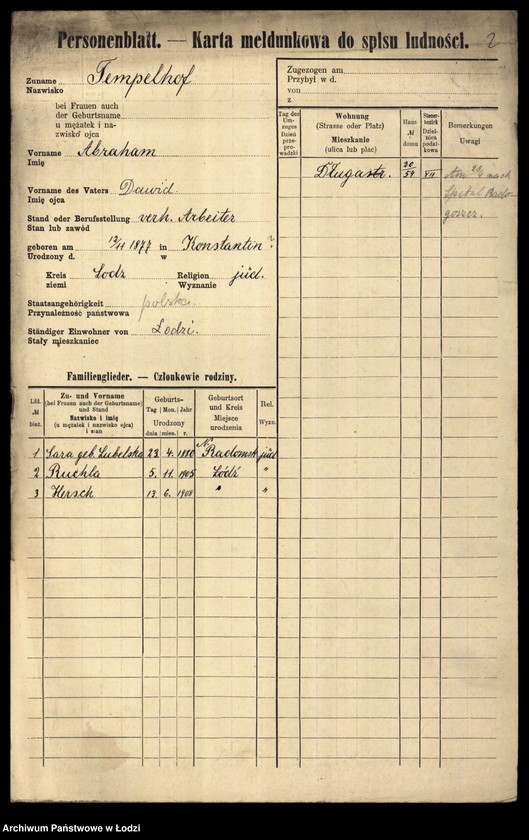 Personenblatt. — Karta meldunkowa do spisu ludności. 2
Zuname Tempelhof
Nazwisko
bei Frauen auch
der Geburtsname
u mężatek i na-
zwisko ojca
Vorname Abraham
Imię
Vorname des Vaters Dawid
Imię ojca
Stand oder Berufsstellung verh. Arbeiter
Stan lub zawód
geboren am 13/4 1877 in Konstantin
Urodzony d. w
Kreis Lodz Religion jüd.
ziemi Wyznanie
Staatsangehörigkeit polska
Przynależność państwowa
Ständiger Einwohner von Lodzi.
Stały mieszkaniec
Zugezogen am
Przybył w d.
von
z
Tag des Um-zuges Dzień prze-prowadzki
Wohnung (Strasse oder Platz) Mieszkanie (ulica lub plac)
Haus- № domu
Steuer-bezirk Dzielnica podat-kowa
Bemerkungen Uwagi
Długastr. 20/59 VII Am nach
Spital Rado-
goszcz.
Familienglieder. — Członkowie rodziny.
Lfd. № bież.
Zu- und Vorname (bei Frauen auch der Geburtsname) und Stand Nazwisko i imię (u mężatek i nazwisko ojca) i stan
Geburts- Tag Mon. Jahr Urodzony dnia mies. r.
Geburtsort und Kreis Miejsce urodzenia
Rel. Wyzn.
1 Sara geb. Lubelska 23. 4. 1880 N Radomsk jüd
2 Ruchla 5. 11. 1905 Łódź "
3 Hersch 13. 6. 1908 " "
Archiwum Państwowe w Łodzi